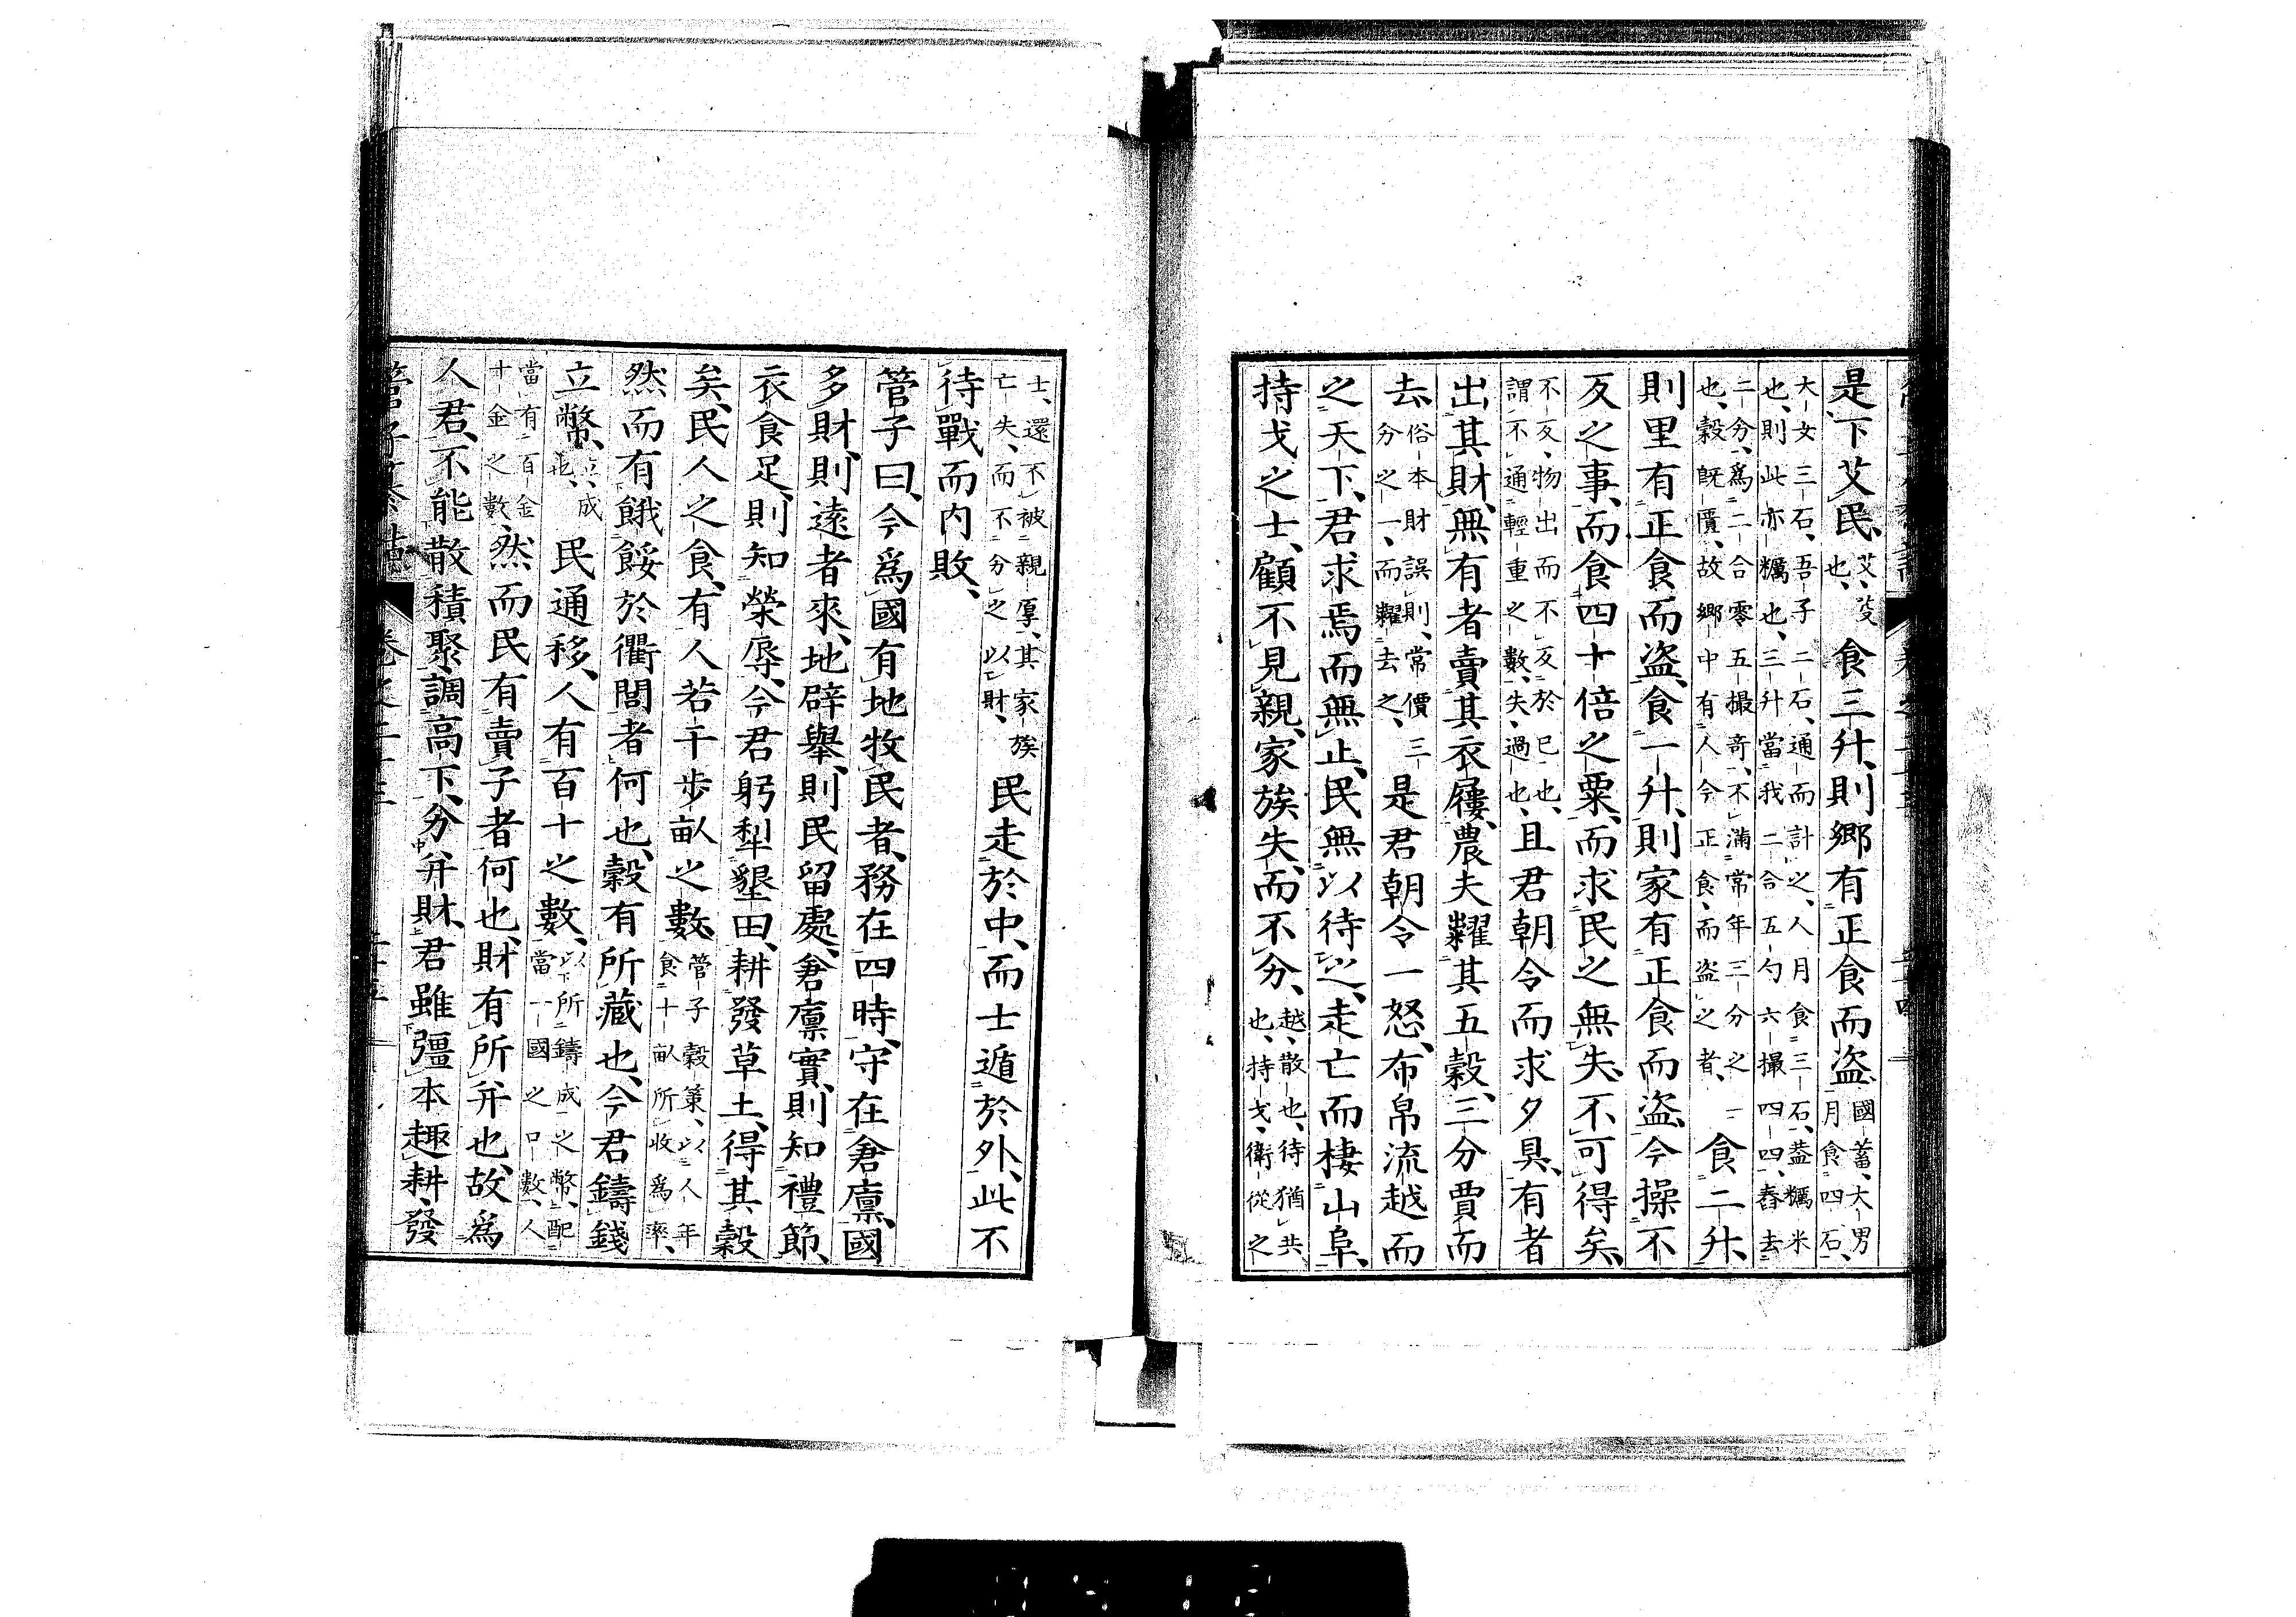 是、下艾民、艾、芟也、食三升、則鄉有正食而盜、國蓄、大男月食四石、
大女三石、吾子二石、通而計之、人月食三石、蓋糲米也、則此亦糲也、三升當我二合五勺六撮四四、舂去
二分、爲二合零五撮奇、不滿常年三分之一也、穀既價、故鄉中有人今正食、而盜之者、食二升、
則里有正食而盜、食一升、則家有正食而盜、今操不
反之事、而食四十倍之粟、而求民之無失、不可得矣、
不反、物出而不反於已也、謂不通輕重之數、失、過也、且君朝令而求夕具、有者
出其財、無有者賣其衣屨、農夫糶其五穀、三分賈而
去、俗本財誤則、常價三分之一、而糶去之、是君朝令一怒、布帛流越而
之天下、君求焉而無止、民無以待之、走亡而棲山阜、
持戈之士、顧不見親、家族失、而不分、越、散也、待猶共也、持戈、衛從之
士、還不被親厚、其家族亡失、而不分之以財、民走於中、而士遁於外、此不
待戰而内敗、
管子曰、今爲國有地牧民者、務在四時、守在倉廩、國
多財、則遠者來、地辟舉、則民留處、倉廩實、則知禮節、
衣食足、則知榮辱、今君躬犁墾田、耕發草土、得其穀
矣、民人之食、有人若干步畝之數、管子穀策、以人年食十畝所收爲率、
然而有餓餒於衢閭者何也、穀有所藏也、今君鑄錢
立幣、立、成也、民通移、人有百十之數、以下所鑄成之幣、配當一國之口數、人
當有百金十金之數、然而民有賣子者何也、財有所并也、故爲
人君、不能散積聚、調高下、分并財、君雖彊本趣耕、發